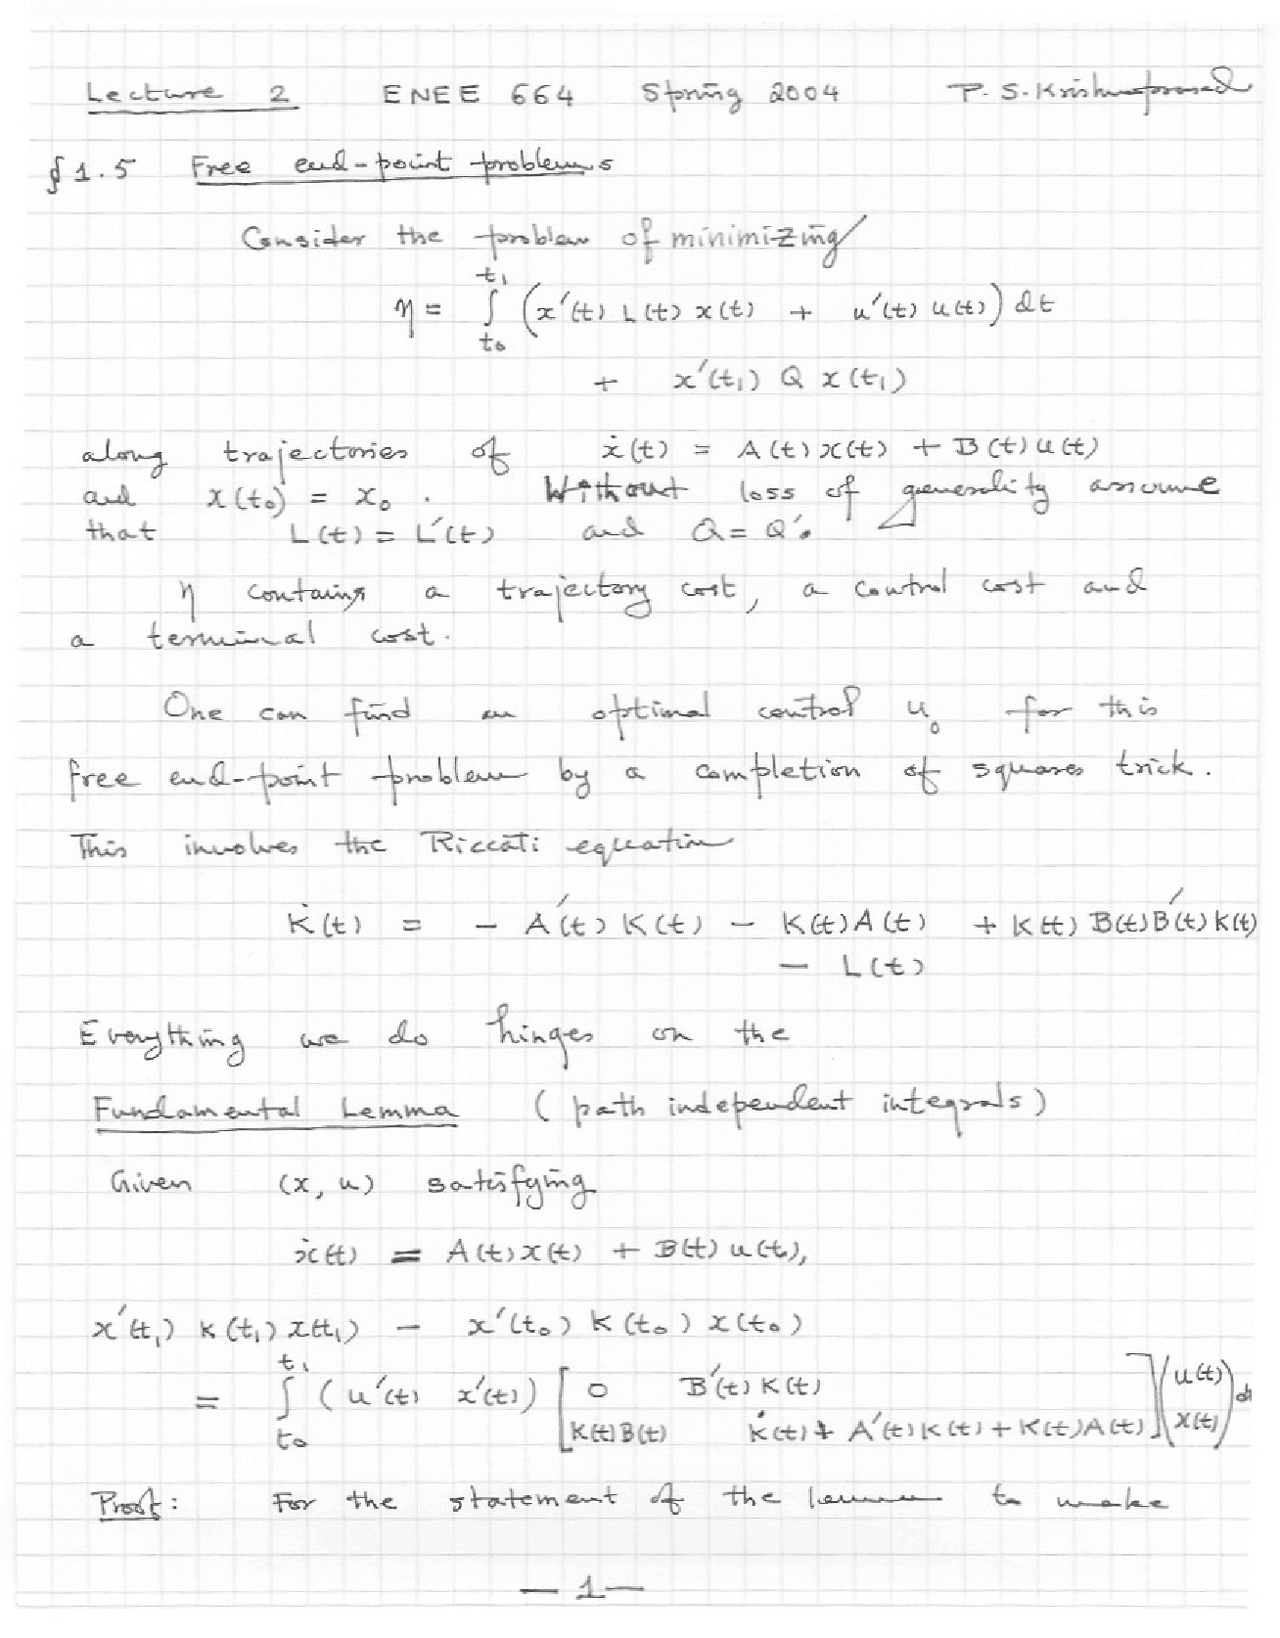 Lecture 2 ENEE 664 Spring 2004 P. S. Krishnaprasad
§1.5 Free end-point problems
Consider the problem of minimizing
η = ∫_{t₀}^{t₁} (x'(t) L(t) x(t) + u'(t) u(t)) dt
+ x'(t₁) Q x(t₁)
along trajectories of ẋ(t) = A(t)x(t) + B(t)u(t)
and x(t₀) = x₀. Without loss of generality assume
that L(t) = L'(t) and Q = Q'.
η contains a trajectory cost, a control cost and
a terminal cost.
One can find an optimal control u₀ for this
free end-point problem by a completion of squares trick.
This involves the Riccati equation
K̇(t) = - A'(t) K(t) - K(t)A(t) + K(t) B(t)B'(t)K(t)
- L(t)
Everything we do hinges on the
Fundamental Lemma (path independent integrals)
Given (x, u) satisfying
ẋ(t) = A(t)x(t) + B(t)u(t),
x'(t₁) K(t₁) x(t₁) - x'(t₀) K(t₀) x(t₀)
= ∫_{t₀}^{t₁} (u'(t) x'(t)) [0 B'(t)K(t)
K(t)B(t) K̇(t) + A'(t)K(t) + K(t)A(t)] (u(t) x(t)) dt
Proof: For the statement of the lemma to make
— 1 —